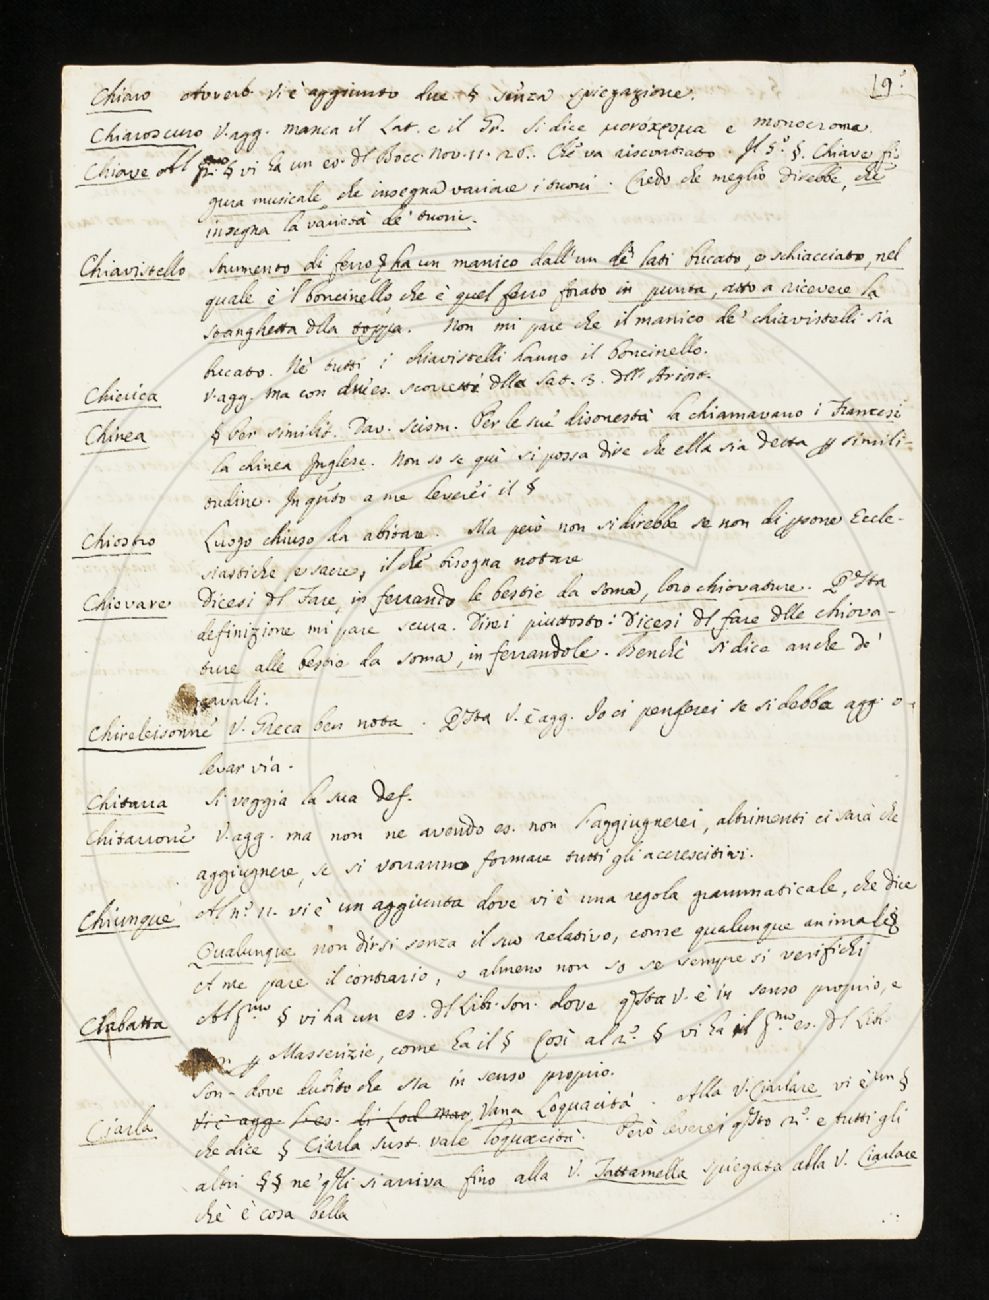 19.
Chiaro Avverb. vi è aggiunto due § senza spiegazione.
Chiaroscuro V. agg. manca il Lat. e il Gr. si dice μονόχρομα e monocroma.
Chiave Al pmo § vi ha un es. del Bocc. Nov. 11. 26. Che va riscontrato. Il 5.° §. Chiave fi-
gura musicale, che insegna variare i tuoni. Credo che meglio direbbe, che
insegna la varietà de' tuoni.
Chiavistello strumento di ferro, ha un manico dall'un de' lati bucato, e schiacciato, nel
quale è 'l boncinello, che è quel ferro forato in punta, atto a ricevere la
stanghetta dlla toppa. Non mi pare che il manico de' chiavistelli sia
bucato. Nè tutti i chiavistelli hanno il boncinello.
Chierica V. agg. ma con due es. scorretti dlla Sat. 3. dll'Ariost.
Chinea § Per similit. Dav. Scism. Per le sue disonestà la chiamavano i Francesi
la chinea Inglese. Non so se qui si possa dire che ella sia detta p simili-
tudine. In qsto a me leverei il §
Chiostro Luogo chiuso da abitare. Ma però non si direbbe se non di psone Eccle-
siastiche e sacre, il che bisogna notare
Chiovare Dicesi dl Fare, in ferrando le bestie da soma, loro chiovature. Qsta
definizione mi pare scura. Direi piuttosto: Dicesi dl fare dlle chiova-
ture alle bestie da soma, in ferrandole. Benchè si dica anche de'
cavalli.
Chirieleisonne V. Greca ben nota. Qsta V. è agg. Io ci penserei se si debba agg. o
levar via.
Chitarra si veggia la sua def.
Chitarrone V. agg. ma non ne avendo es. non l'aggiugnerei, altrimenti ci sarà che
aggiugnere, se si vorranno formare tutti gli accrescitivi.
Chiunque Al n.° 11. vi è un aggiunta dove vi è una regola grammaticale, che dice
Qualunque non dirsi senza il suo relativo, come qualunque animale §
A me pare il contrario, o almeno non so se sempre si verifichi
Ciabatta Al pmo § vi ha un es. dl Lib. Son. dove qsta V. è in senso proprio, e
non p Masserizie, come ha il § Così al 2.° § vi ha il pmo es. dl Lib.
Son. dove dubito che sta in senso proprio.
Ciarla Vi è agg. l'es. Vana Loquacità. Alla V. Ciarlare vi è un §
che dice § Ciarla sust. vale loquacità. Però leverei qsto n.° e tutti gli
altri §§ ne' qli si arriva fino alla V. Tattamella spiegata alla V. Ciarlare
che è cosa bella